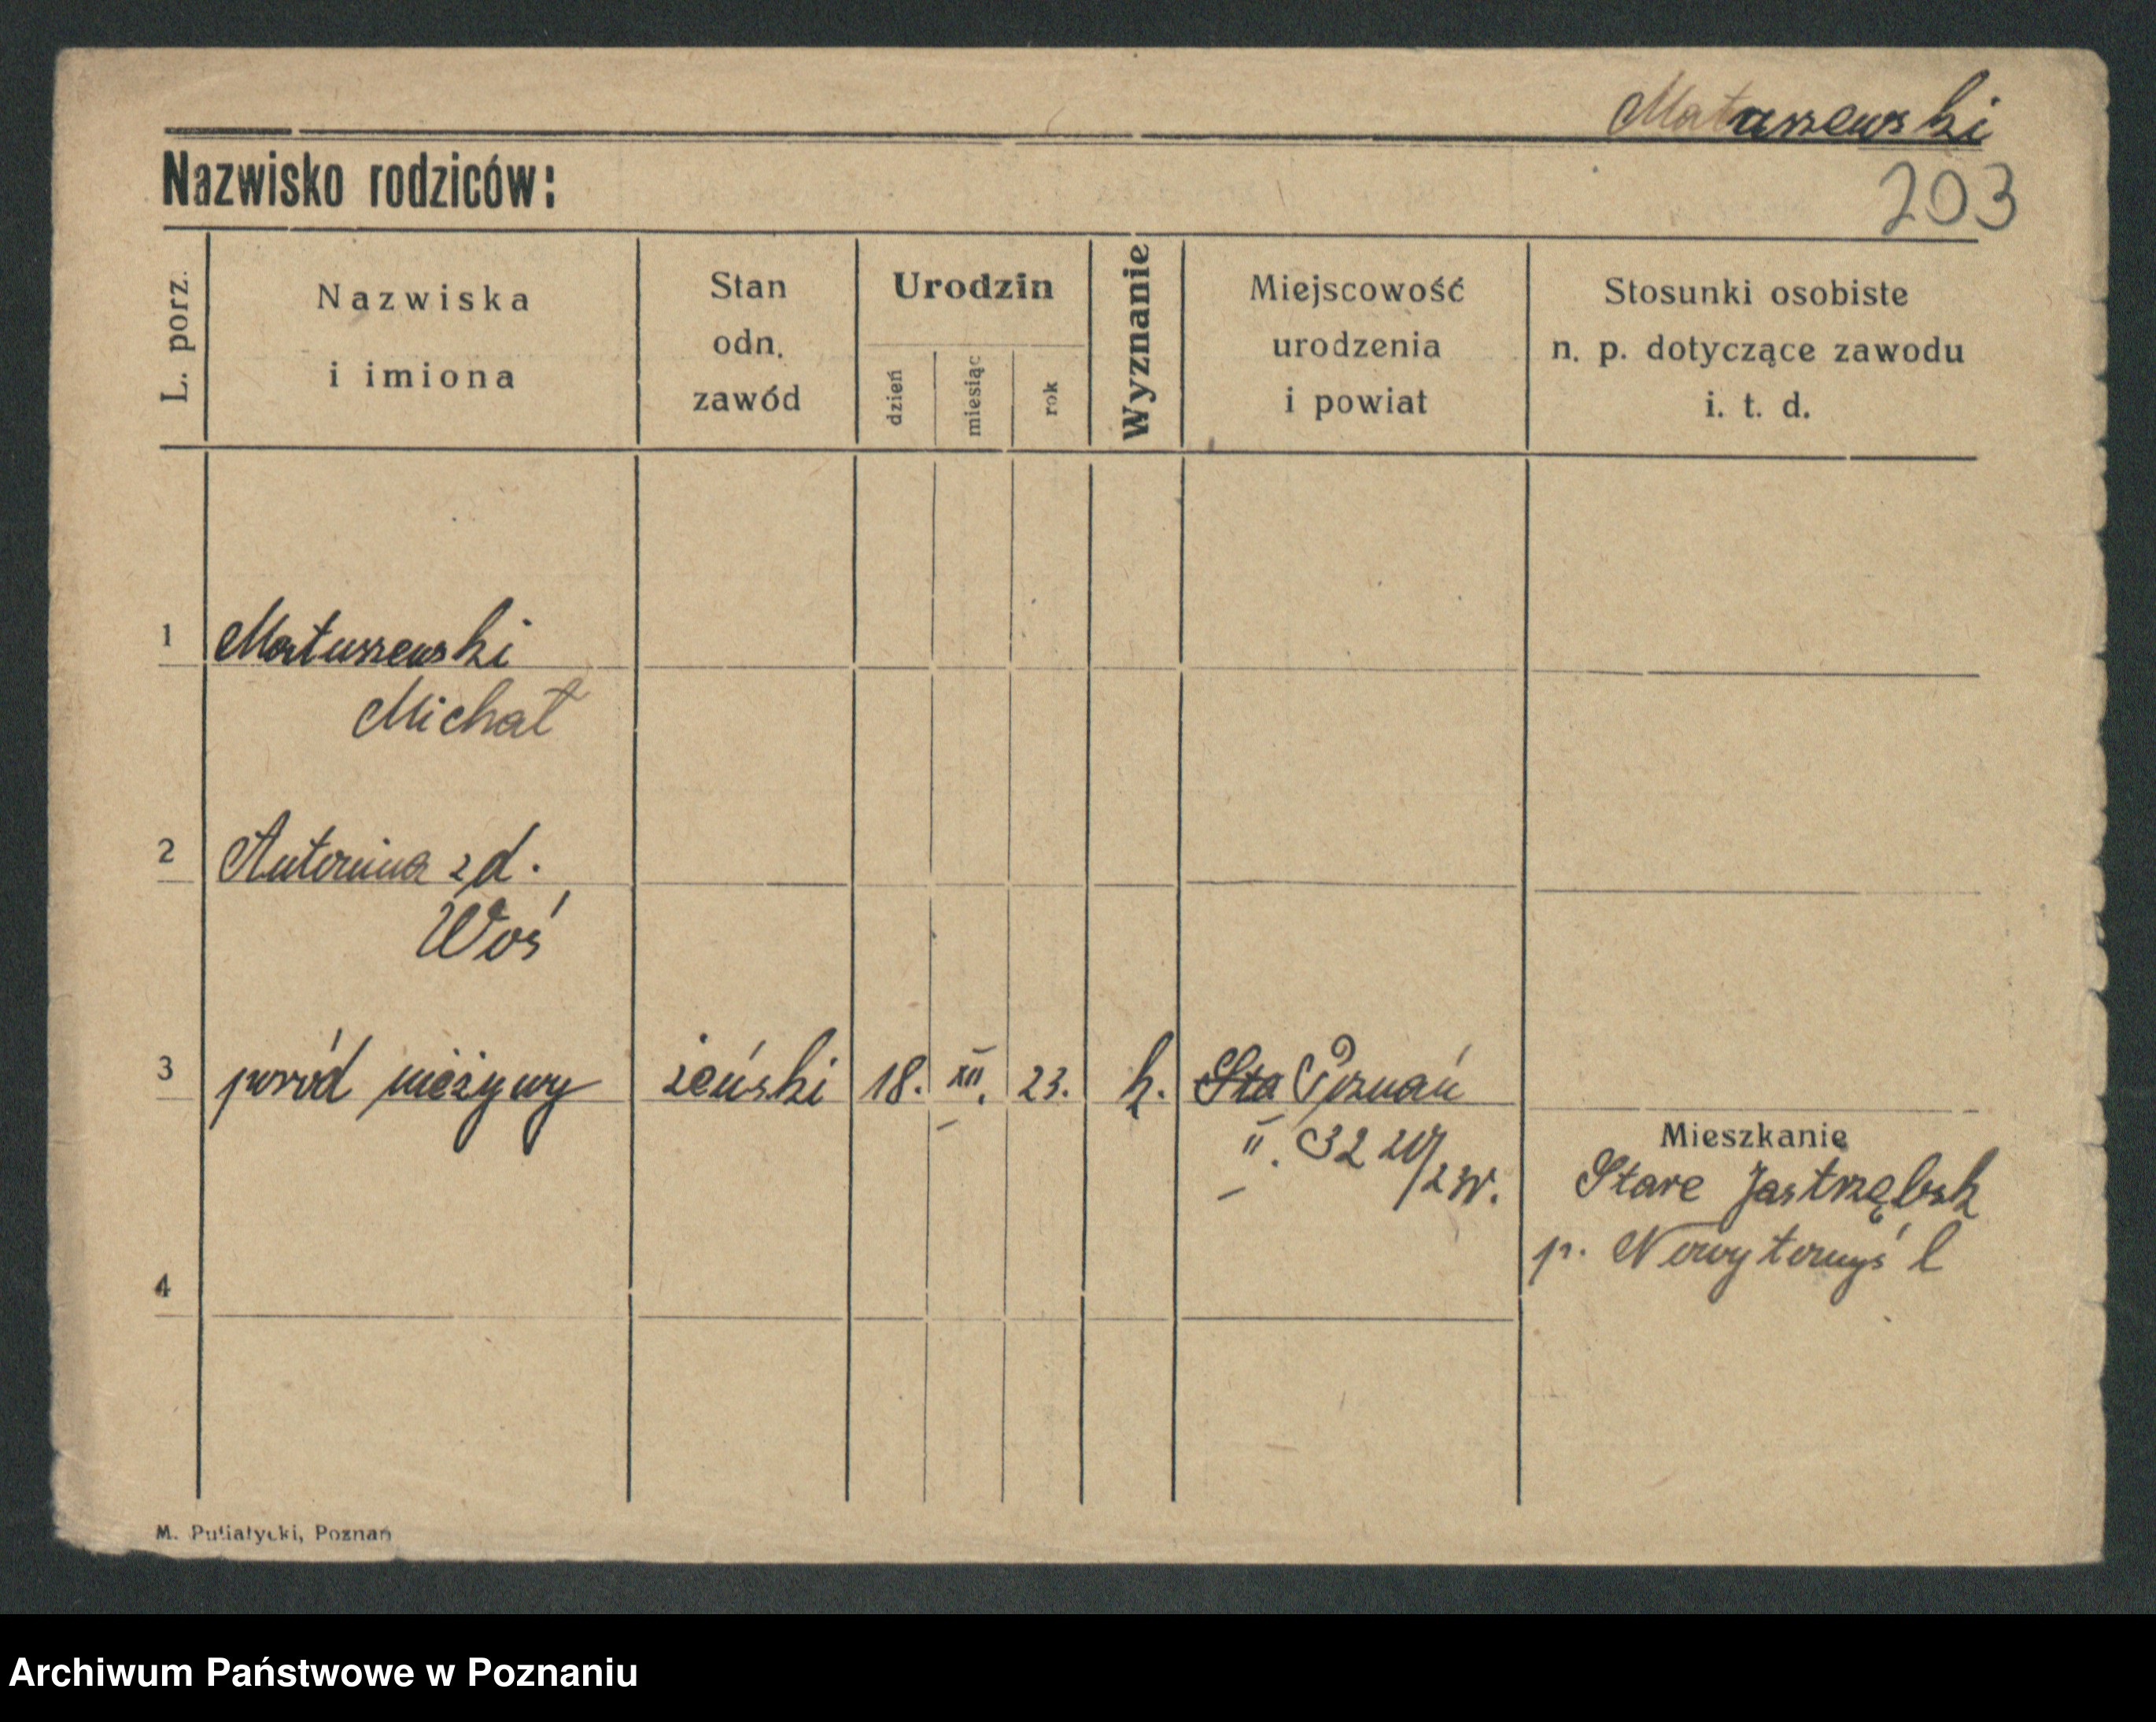 Matuszewski
Nazwisko rodziców:
203
L. porz.
Nazwiska
i imiona
Stan
odn.
zawód
Urodzin
dzień
miesiąc
rok
Wyznanie
Miejscowość
urodzenia
i powiat
Stosunki osobiste
n. p. dotyczące zawodu
i. t. d.
1 Matuszewski
Michał
2 Antonina zd.
Woś
3 poród nieżywy żeński 18. XII. 23. k. Sta Poznań
II.
Mieszkanie
Stare Jastrzębsk
p. Nowytomyśl
4
M. Putiatycki, Poznań
Archiwum Państwowe w Poznaniu